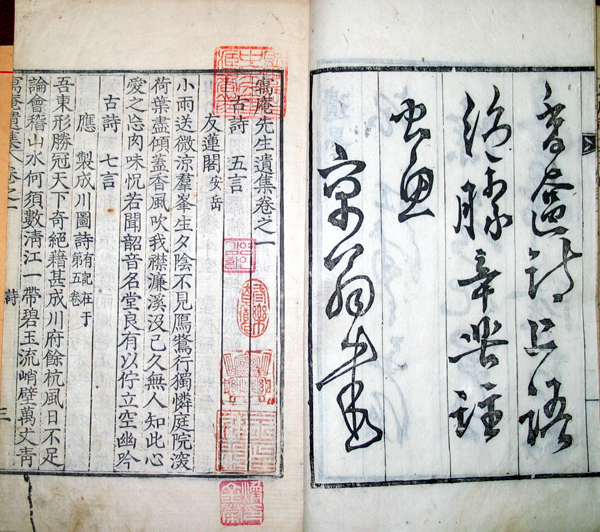 香奩詩上語
勝辛苦註
虫魚
寓庵先生遺集卷之一
古詩 五言
友蓮閣 安岳
小雨送微涼羣峯生夕陰不見鴈鶩行獨憐庭院深
荷葉盡傾蓋香風吹我襟濂溪沒已久無人知此心
愛之忘肉味怳若聞韶音名堂良有以佇立空幽吟
古詩 七言
應 製成川圖詩 有記在于第五卷
吾東形勝冠天下奇絕藉甚成川府餘杭風日不足
論會稽山水何須數淸江一帶碧玉流峭壁萬丈靑
寓庵遺集 卷之一 詩 三